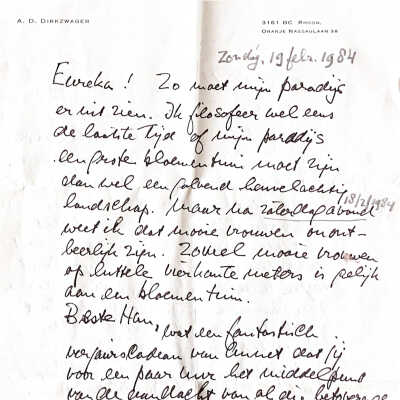 A. D. DIRKZWAGER
3161 BC RHOON,
ORANJE NASSAULAAN 38
Zondag, 19 febr. 1984
Eureka! Zo moet mijn paradijs
er uit zien. Ik filosofeer wel eens
de laatste tijd of mijn paradijs
een grote bloementuin moet zijn
dan wel een golvend heuvelachtig
landschap. Maar na zaterdagavond 18/2/1984
weet ik dat mooie vrouwen onont-
beerlijk zijn. Zoveel mooie vrouwen
op luttele vierkante meters is gelijk
aan een bloementuin.
Beste Han,
wat een fantastisch
verjaarscadeau van dat jij
voor een paar uur het middelpunt
van de aandacht van al die